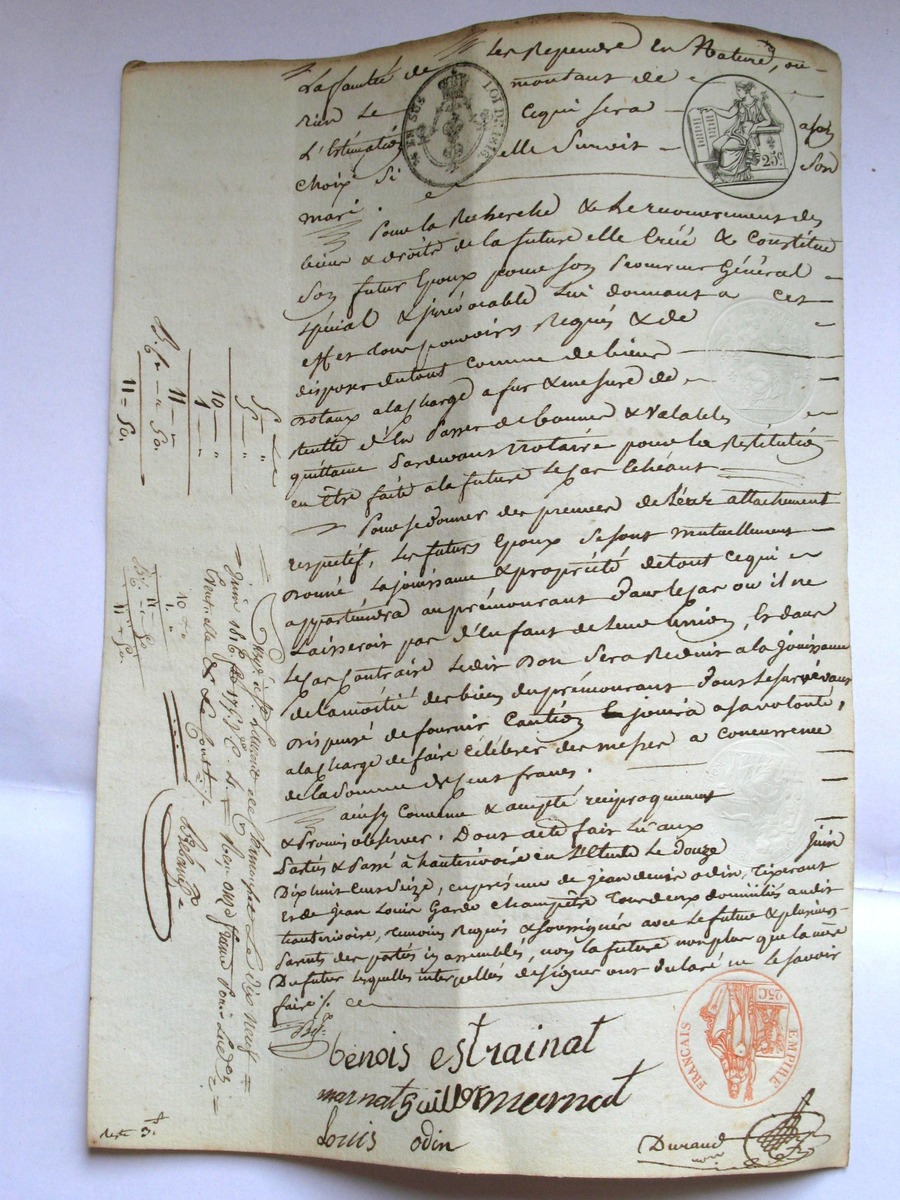 La faculté de les Reprendre En Nature, ou
rien le montant de
L'Estimation cequi sera
choix si elle Survit a son
mari.
% EN SUS
LOI DE 1816.
25C
Pour la Recherche & Le recouvrement des
biens & droits de la future elle Créé & Constitue
Son futur Epoux pour son Procureur Général
Spécial & irrévocable Lui donnant a cet
effet tous pouvoirs Requis & de
disposer dutout comme de biens
dotaux a la charge a fur & mesure de
Recette d'En Passer de bonnes & Valables
quittance Pardevant Notaire pour la Restitution
en Etre faite a la future le cas Echéant
Pour se donner des preuves de Leur attachement
respectif, les futurs Epoux se sont mutuellement
Donné La jouissance & propriété detout cequi
appartiendra au prémourant dans le cas ou il ne
Laisseroit pas d'Enfant de Leur union, Et dans
le cas Contraire Ledit Don sera Reduit a la jouissance
de la moitié des biens du prémourant dont le survivant
Dispensé de fournir Caution jouira a sa volonté,
a la charge de faire Célébrer des messes a concurrence
de la somme de Cent francs.
ainsy Convenu & accepté réciproquement
& Promis observer. Dont acte fait Lu aux
Parties & Passé à hauterivoire en l'Etude Le douze juin
Dix huit Cent Seize, en présence de jean denis odin, Tixerant
Et de jean Louis Garde champêtre tous deux domiciliés audit
hauterivoire, temoins Requis & soussignés avec le futur & plusieurs
Parents des parties ici assemblés, non la future non plus que la mère
Du futur Lesquelles interpellées de signer ont déclaré ne le savoir
faire
benois estrainat
marnat Guillermarnat
Louis odin
Durand
EMPIRE
FRANCAIS
25C
reste 3f
10
1
11
11 = 50.
11 - 50.
10
11 = 50
juin 1816
onze francs